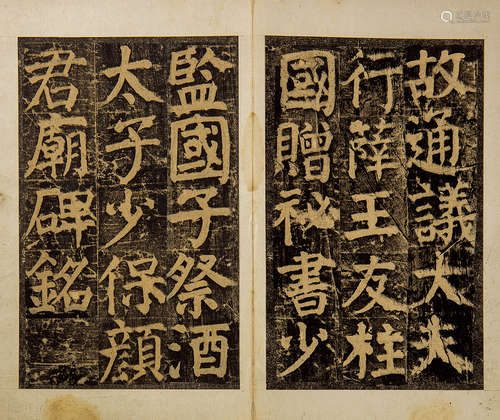 故通議大夫
行薛王友柱
國贈祕書少
監國子祭酒
太子少保顔
君廟碑銘